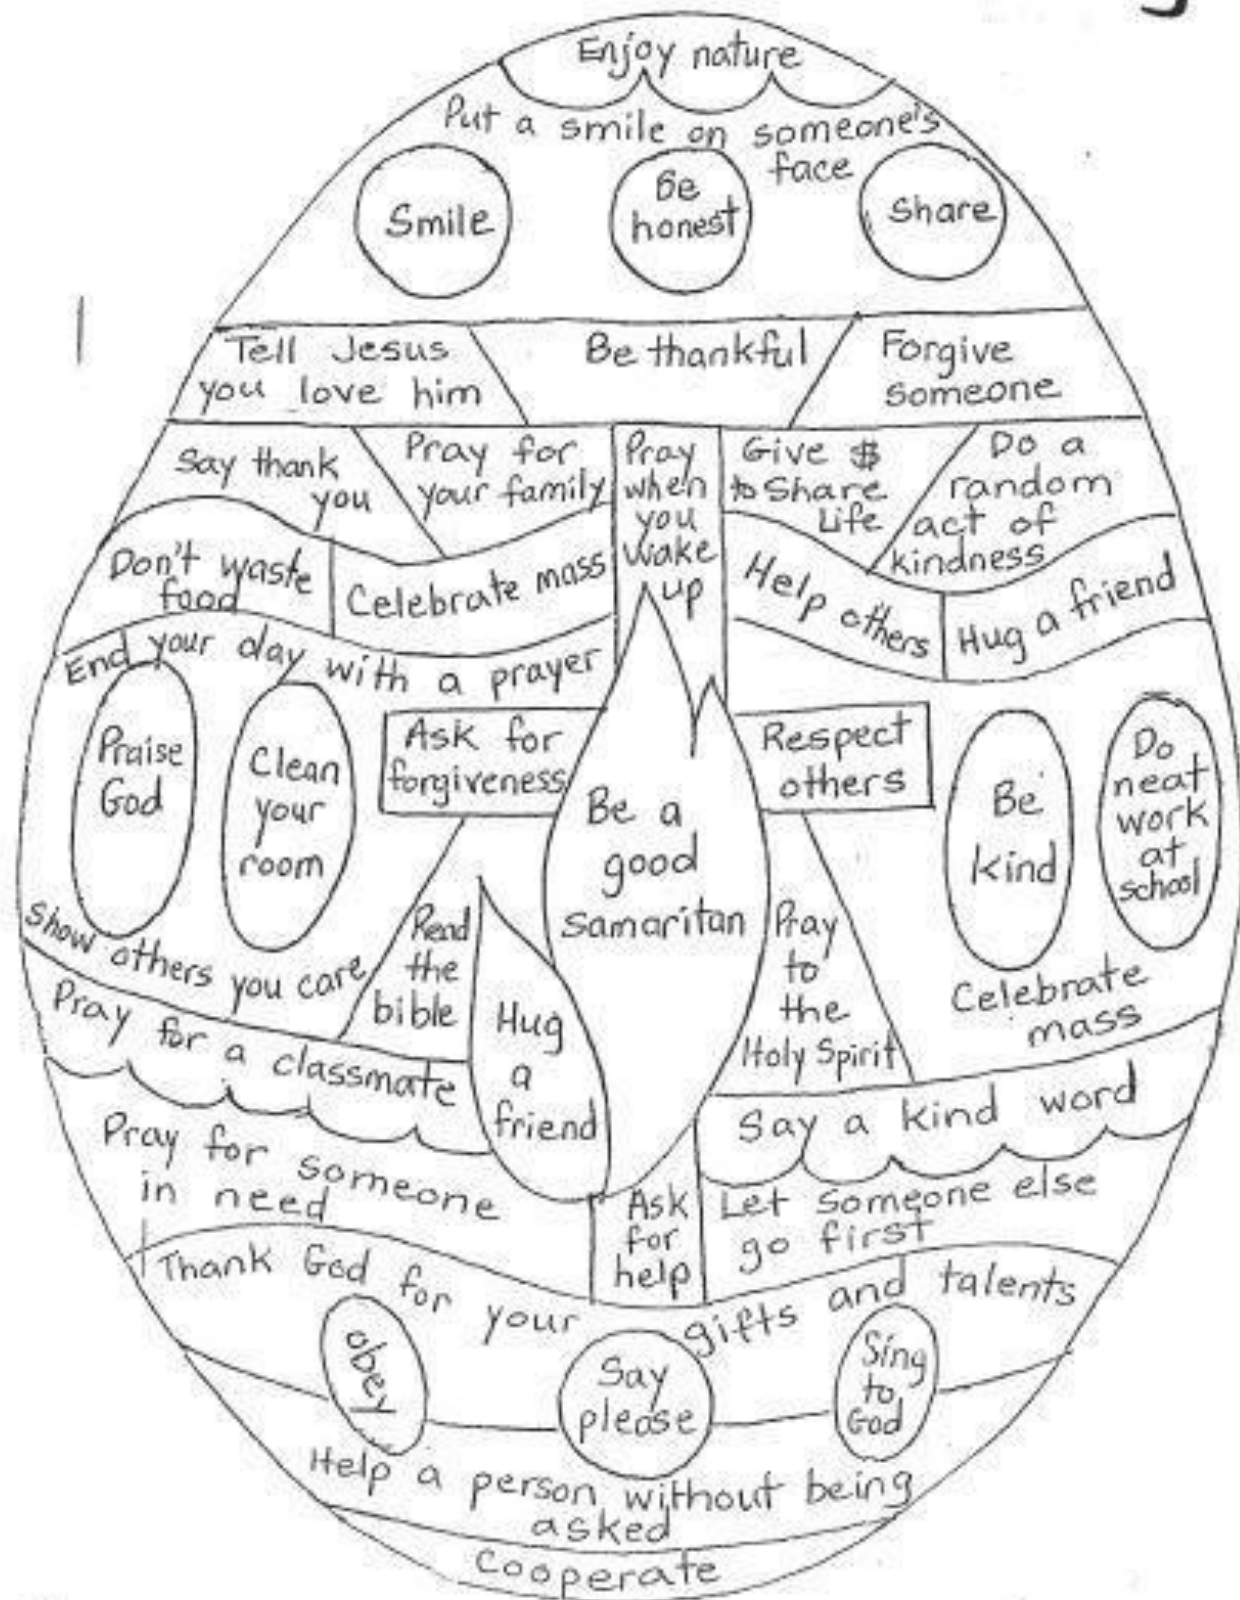 Enjoy nature
Put a smile on someone's
face
Smile
Be
honest
Share
Tell Jesus
you love him
Be thankful
Forgive
someone
Say thank
you
Pray for
your family
Pray
when
you
wake
up
Give $
to Share
Life
Do a
random
act of
kindness
Don't waste
food
Celebrate mass
Help others
Hug a friend
End your day with a prayer
Praise
God
Clean
your
room
Ask for
forgiveness
Be a
good
Samaritan
Respect
others
Be
kind
Do
neat
work
at
school
Show others you care
Read
the
bible
Hug
a
friend
Pray
to
the
Holy Spirit
Celebrate
mass
Pray for a classmate
Say a kind word
Pray for someone
in need
Ask
for
help
Let someone else
go first
Thank God for your gifts and talents
obey
Say
please
Sing
to
God
Help a person without being
asked
Cooperate